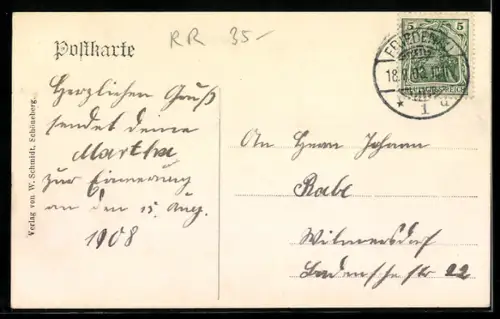 RR 35-
Postkarte
Herzlichen Gruß
sendet deine
Martha
zur Erinnerung
an den 15. Aug.
1908
Verlag von W. Schmidt, Schöneberg.
5 5
FRIEDENAU
18.
1
An Herrn Johann
Rabe
Wilmersdorf
Badensche str 22